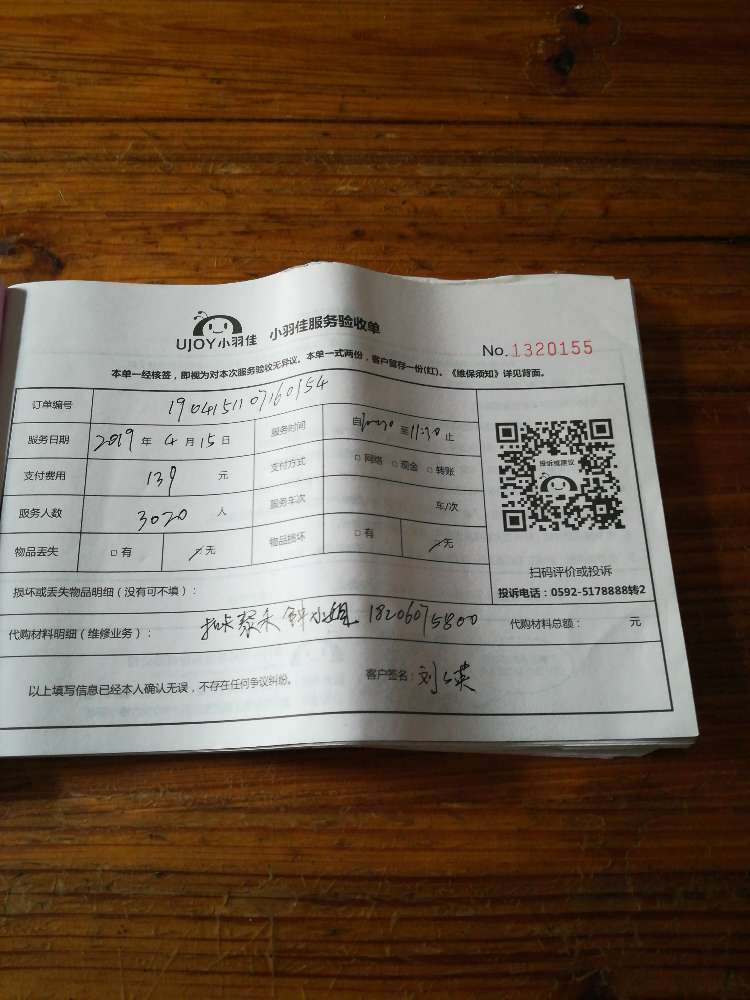 UJOY小羽佳 小羽佳服务验收单
No.1320155
本单一经核签，即视为对本次服务验收无异议。本单一式两份，客户留存一份(红)。《维保须知》详见背面。
订单编号
服务日期 2019 年 4 月 15 日 服务时间 自 至 11:30 止
支付费用 139 元 支付方式 □ 网络 □ 现金 □ 转账
服务人数 3020 人 服务车次 车/次
物品丢失 □ 有 无 物品损坏 □ 有 无
投诉或建议
扫码评价或投诉
投诉电话：0592-5178888转2
损坏或丢失物品明细（没有可不填）：
代购材料明细（维修业务）： 钟小姐 18206075800 代购材料总额： 元
以上填写信息已经本人确认无误，不存在任何争议纠纷。 客户签名：刘 英